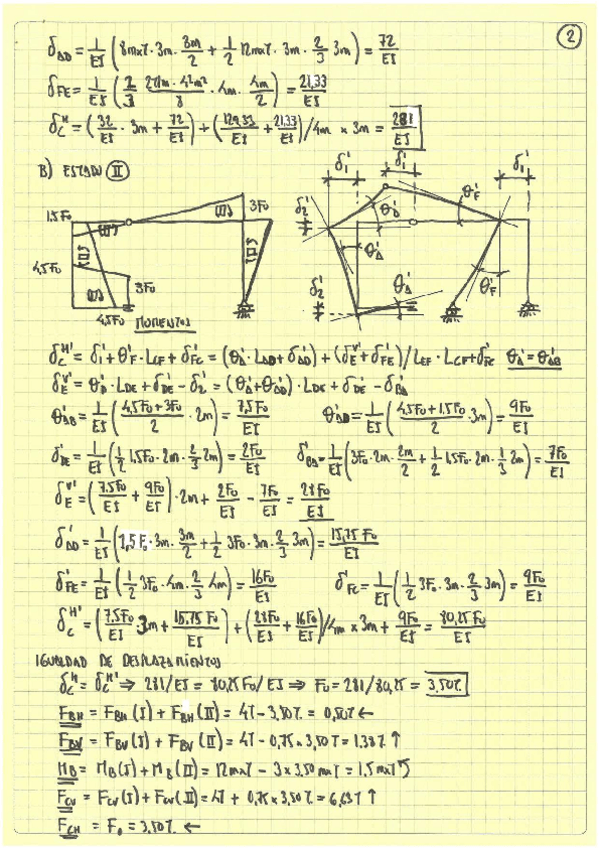 2
δ_AD = 1/EI (8mxT·3m·3m/2 + 1/2 12mxT·3m·2/3 3m) = 72/EI
δ_FE = 1/EI (2/3 2T/m·4²m²/8·4m·4m/2) = 21,33/EI
δ_C^H = (32/EI·3m + 72/EI) + (129,33/EI + 21,33/EI)/4m x 3m = 281/EI
B) ESTADO II
δ1' δ1'
1,5F0 3F0 δ2' θD' θF'
4,5F0 3F0 θA' θA' θF'
4,5F0 δ2'
MOMENTOS
δ_C^H' = δ1' + θF'·L_CF + δFC' = (θA'·L_AD + δAD') + (δE^V' + δFE')/L_EF·L_CF + δFC' θA' = θAB'
δE^V' = θD'·L_DE + δDE' - δ2' = (θA' + θAD')·L_DE + δDE' - δBA'
θAB' = 1/EI ((4,5F0+3F0)/2·2m) = 7,5F0/EI θAD' = 1/EI ((4,5F0+1,5F0)/2·3m) = 9F0/EI
δDE' = 1/EI (1/2 1,5F0·2m·2/3 2m) = 2F0/EI δBA' = 1/EI (3F0·2m·2m/2 + 1/2 1,5F0·2m·1/3 2m) = 7F0/EI
δE^V' = (7,5F0/EI + 9F0/EI)·2m + 2F0/EI - 7F0/EI = 28F0/EI
δAD' = 1/EI (1,5F0·3m·3m/2 + 1/2 3F0·3m·2/3 3m) = 15,75F0/EI
δFE' = 1/EI (1/2 3F0·4m·2/3 4m) = 16F0/EI δFC' = 1/EI (1/2 3F0·3m·2/3 3m) = 9F0/EI
δ_C^H' = (7,5F0/EI 3m + 15,75F0/EI) + (28F0/EI + 16F0/EI)/4m x 3m + 9F0/EI = 80,25F0/EI
IGUALDAD DE DESPLAZAMIENTOS
δ_C^H = δ_C^H' ⇒ 281/EI = 80,25F0/EI ⇒ F0 = 281/80,25 = 3,50T.
F_BH = F_BH(I) + F_BH(II) = 4T - 3,50T. = 0,50T ←
F_BV = F_BV(I) + F_BV(II) = 4T - 0,75 x 3,50T = 1,38T ↑
M_B = M_B(I) + M_B(II) = 12mxT - 3 x 3,50mxT = 1,5mxT ↰
F_CV = F_CV(I) + F_CV(II) = 4T + 0,75 x 3,50T. = 6,63T ↑
F_CH = F0 = 3,50T. ←